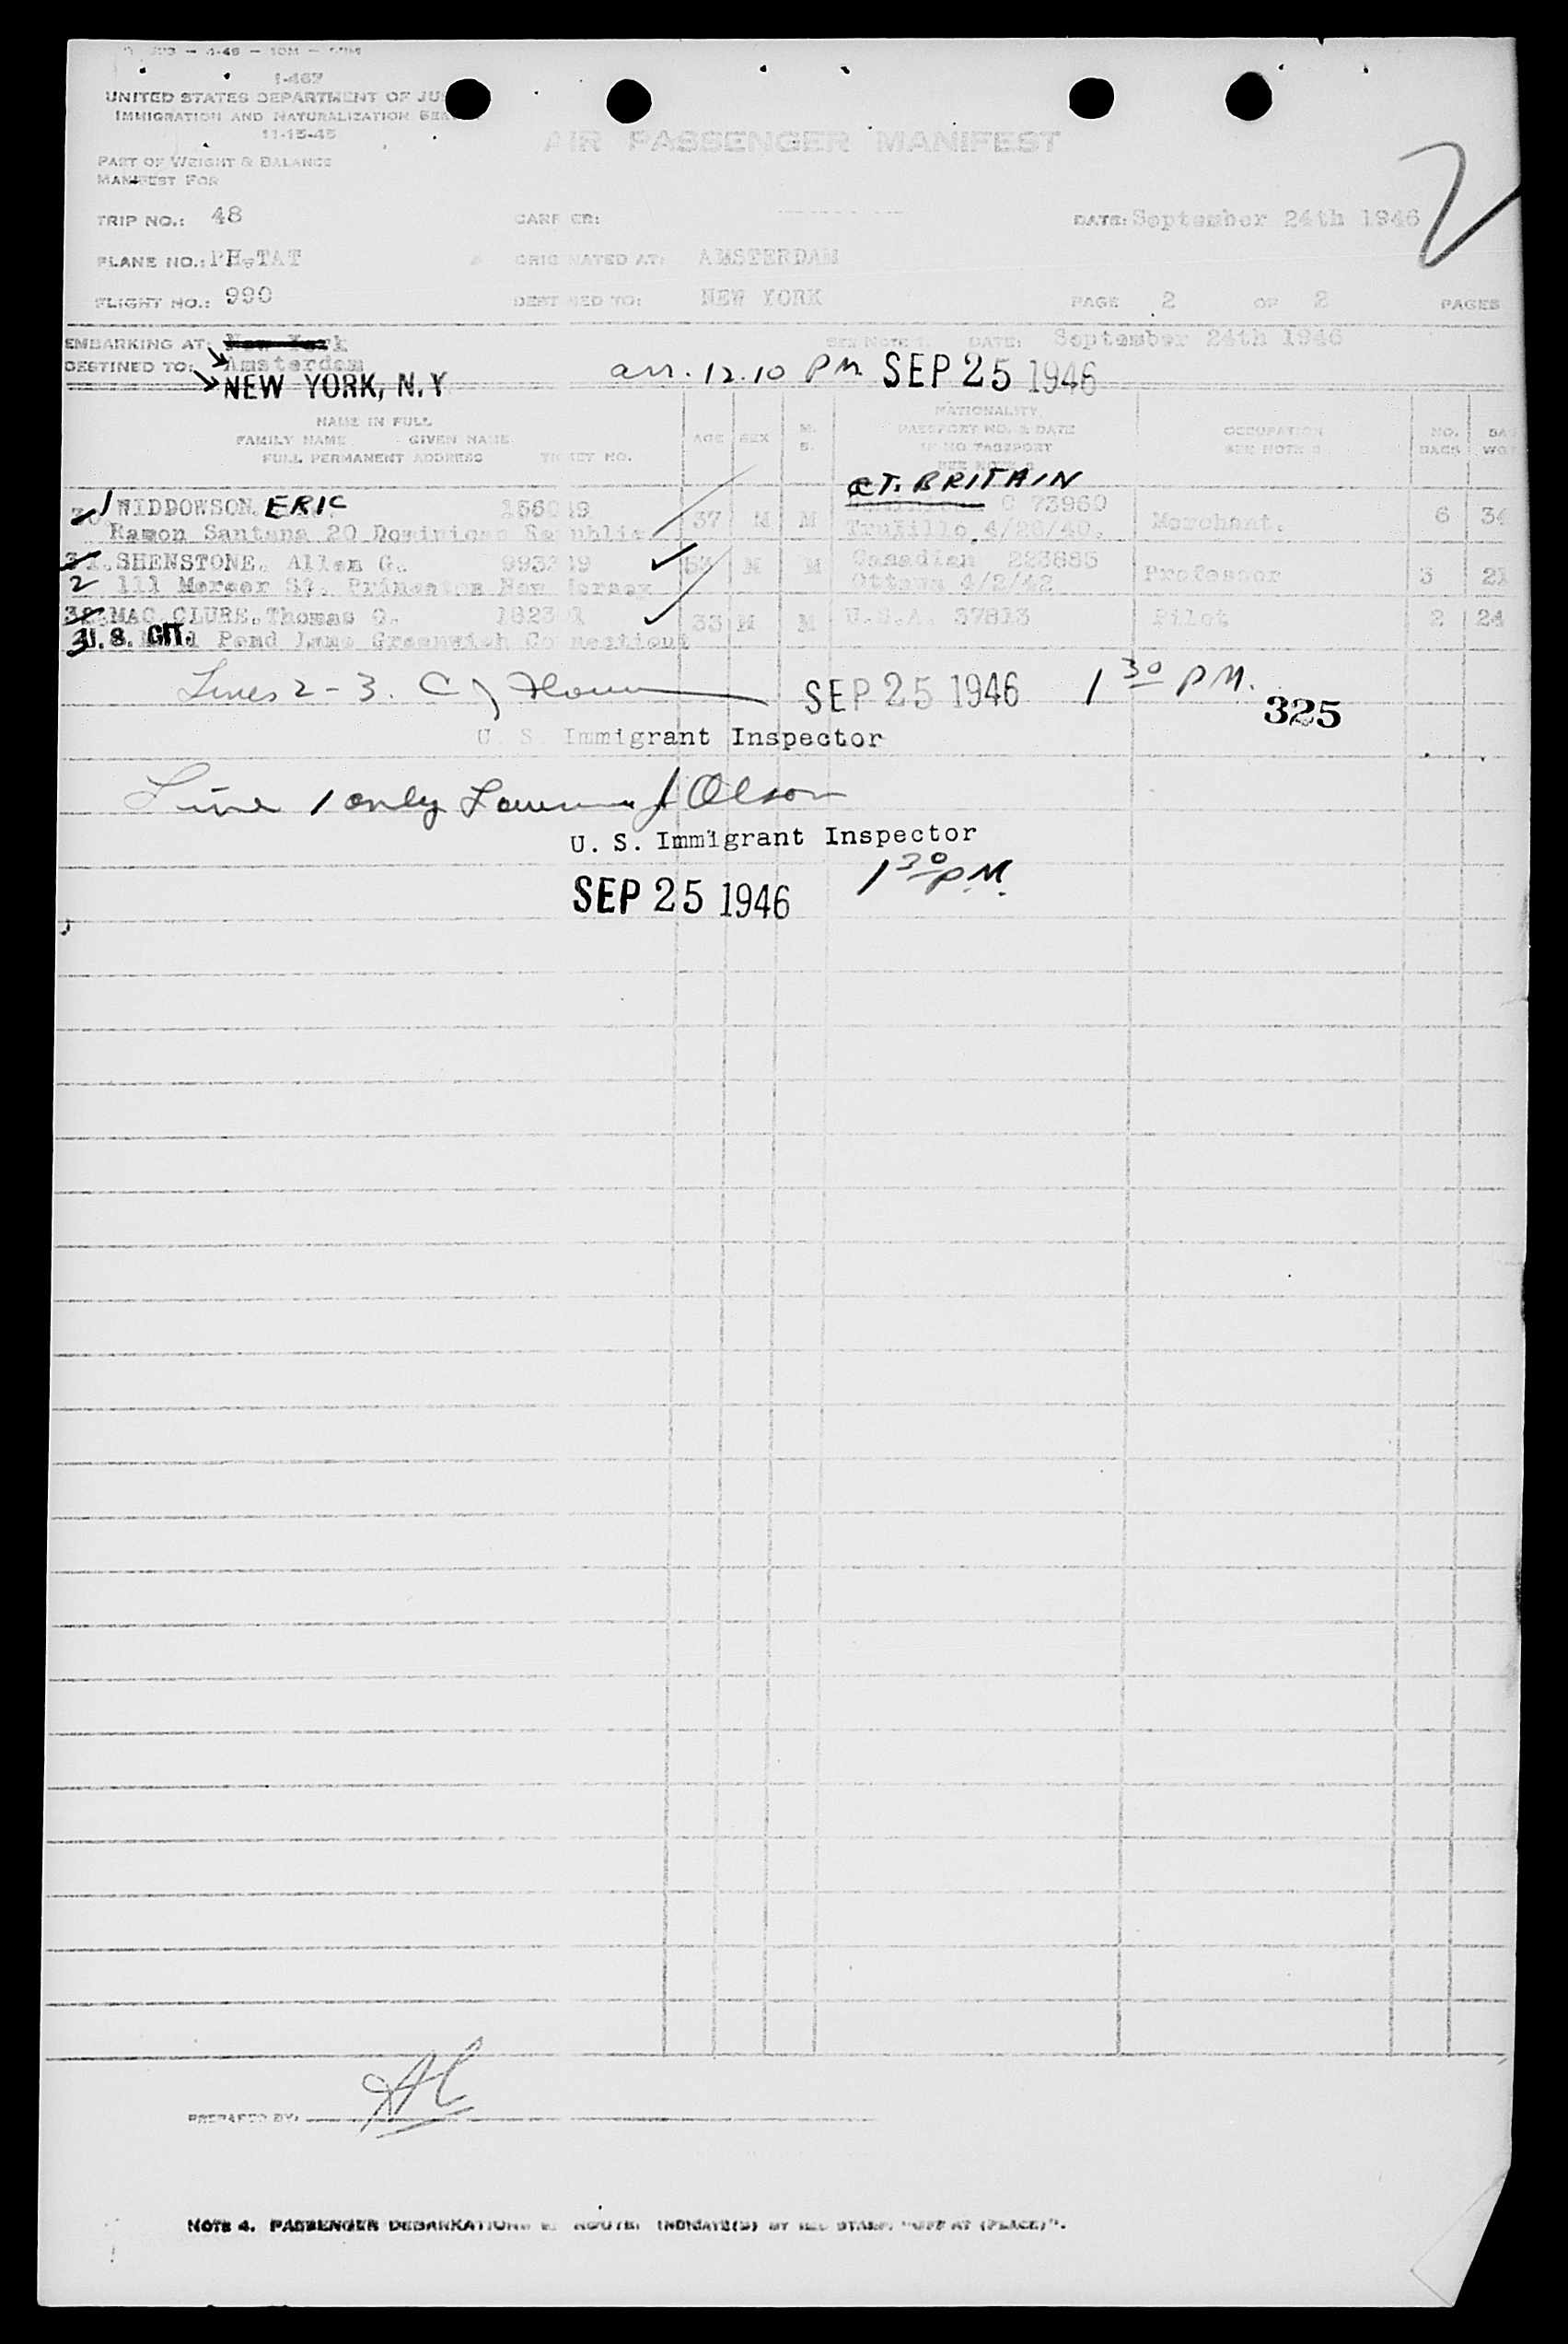 1-467
UNITED STATES DEPARTMENT OF JUS
IMMIGRATION AND NATURALIZATION SER
11-15-45
AIR PASSENGER MANIFEST
PART OF WEIGHT & BALANCE
MANIFEST FOR
2
TRIP NO.: 48 CARR ER: DATE: September 24th 1946
PLANE NO.: PH-TAT ORIG NATED AT: AMSTERDAM
FLIGHT NO.: 990 DEST NED TO: NEW YORK PAGE 2 OF 2 PAGES
EMBARKING AT: New York SEE NOTE 1. DATE: September 24th 1946
DESTINED TO: Amsterdam
NEW YORK, N.Y. arr. 12.10 PM. SEP 25 1946
NAME IN FULL
FAMILY NAME GIVEN NAME
FULL PERMANENT ADDRESS TICKET NO. AGE SEX M. S. NATIONALITY PASSPORT NO. & DATE IF NO PASSPORT SEE NOTE OCCUPATION SEE NOTE NO. BAGS
GT. BRITAIN
1 WIDDOWSON, ERIC 37 M M C 73960 Merchant. 6 34
Ramon Santana 20 Dominican Republic Trujillo, 4/26/40.
31. SHENSTONE, Allen G. 53 M M Canadian 223885 Professor 3 21
2 111 Mercer St. Princeton New Jersey Ottawa 4/2/42
32. MAC CLURE, Thomas O. 33 M M U.S.A. 37813 Pilot 2 24
3 U.S. CIT. Pond Lane Greenwich Connecticut
Lines 2-3. C J SEP 25 1946 1 30 PM.
325
U. S. Immigrant Inspector
Line 1 only J Olson
U. S. Immigrant Inspector
1 30 PM.
SEP 25 1946
PREPARED BY:
NOTE 4. PASSENGER DEBARKATIONS E ROUTE: INDICATE(D) BY STAMP "OFF AT (PLACE)".